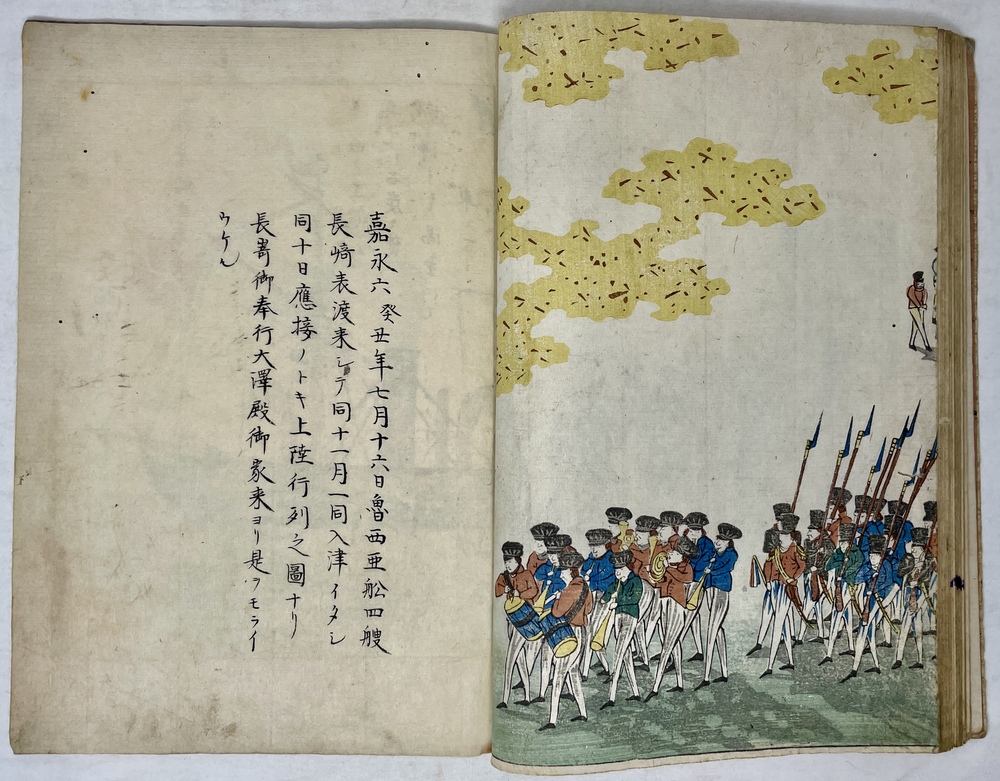 嘉永六癸丑年七月十六日魯西亜舩四艘
長崎表渡来シテ同十一月一同入津イタシ
同十日應接ノトキ上陸行列之圖ナリ
長嵜御奉行大澤殿御家来ヨリ是ヲモライ
ウケル